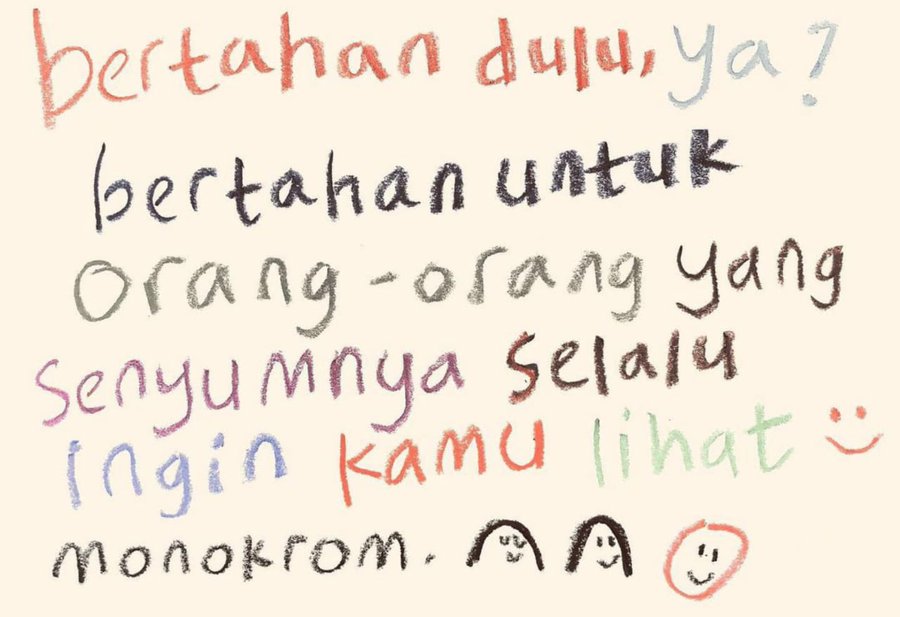 bertahan dulu, ya?
bertahan untuk
orang-orang yang
senyumnya selalu
ingin kamu lihat :)
monokrom.